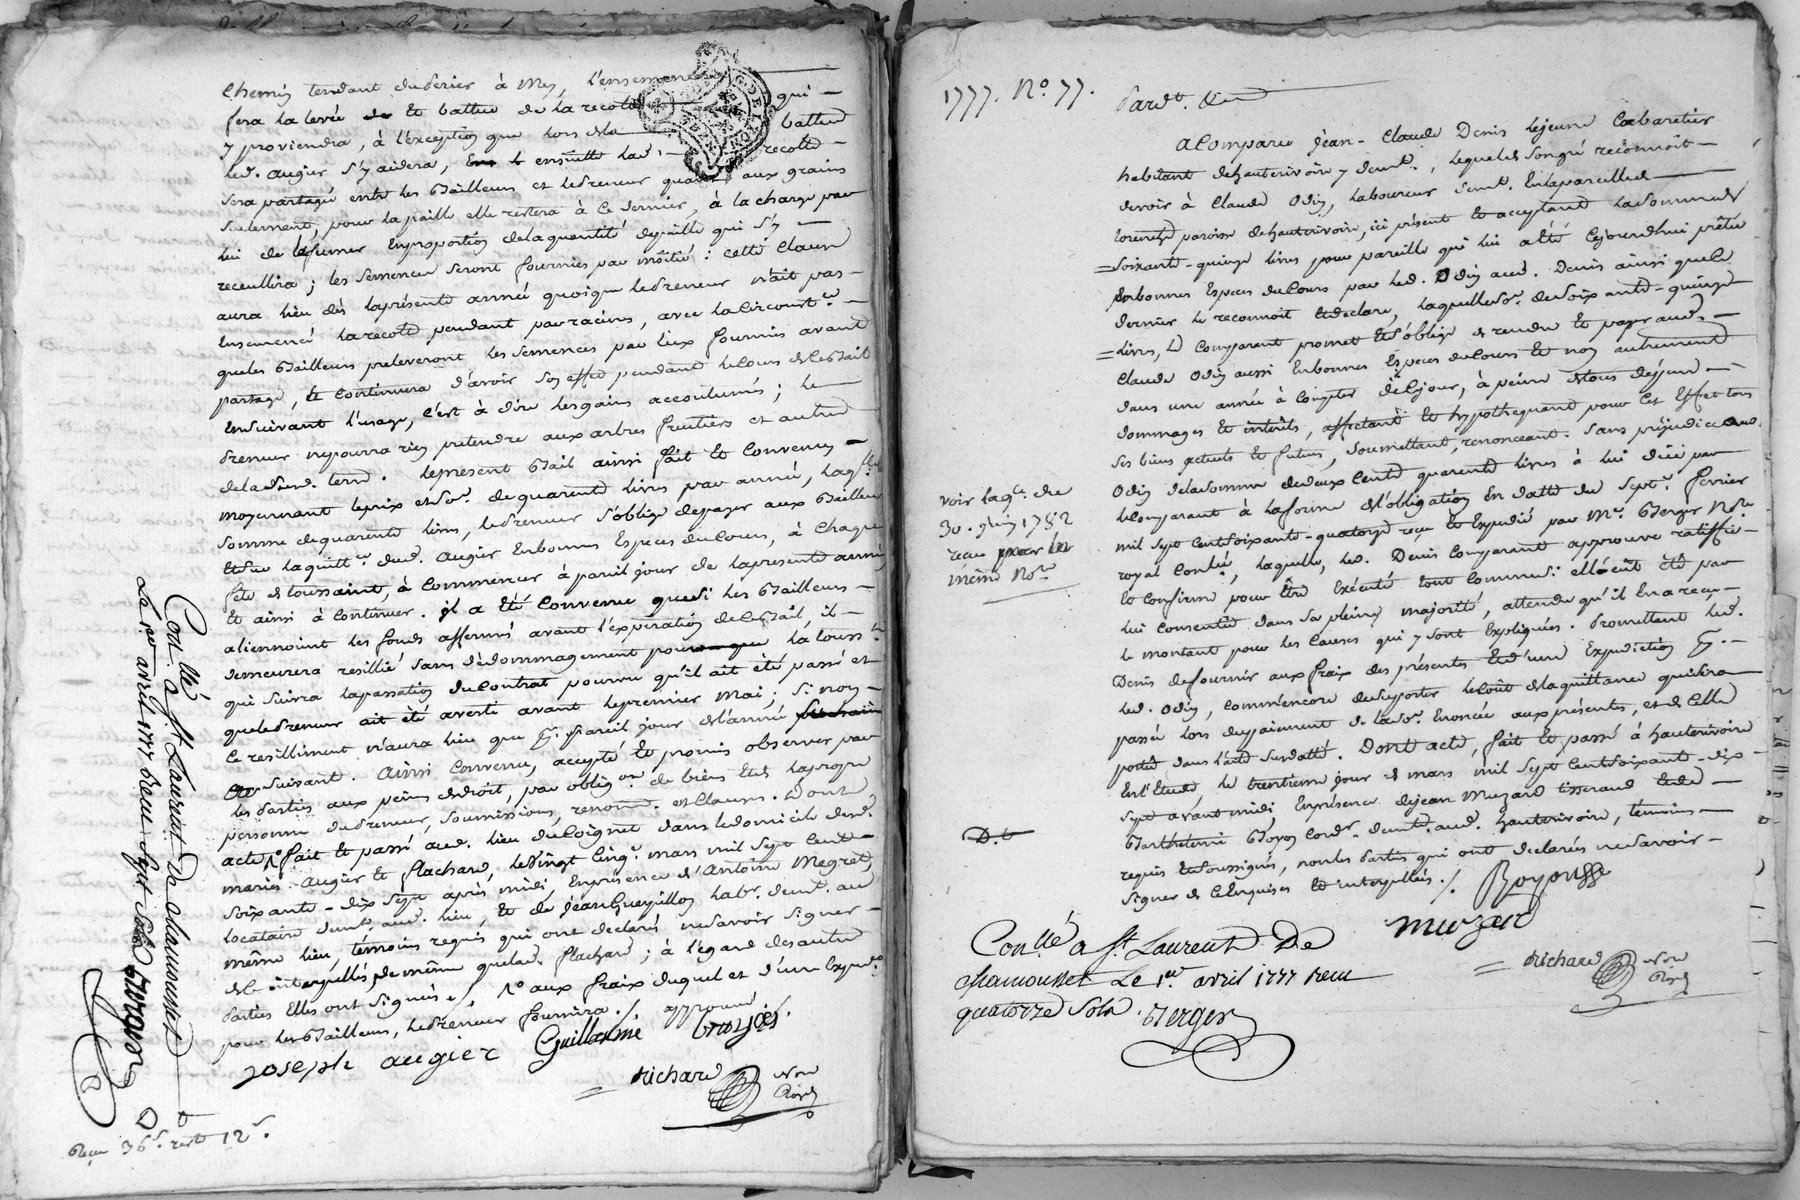 chemin tendant du Périer à Mey, l'ensemencé
fera la levée et battue de la recolte qui
y proviendra, à l'exception que lors de la battue
led. augier s'y aidera, ensuitte lad. recolte
sera partagée entre les Bailleurs et le preneur quant aux grains
seulement, pour la paille elle restera à ce dernier, à la charge par
lui de fumer en proportion de la quantité de paille qui s'y
receuillira ; les semences seront fournies par moitié : cette clause
aura lieu dès la présente année quoique le preneur n'ait pas
ensemencé la recolte pendant par racines, avec la circonst.ce
que les Bailleurs preleveront les semences par eux fournies avant
partage, et continuera d'avoir son effet pendant le cours de ce Bail
en suivant l'usage, c'est à dire les gains accoutumés ; le
preneur ne pourra rien pretendre aux arbres fruitiers et autres
de lad. terre. le present Bail ainsi fait et convenu
moyennant le prix et so.e de quarente livres par année, laq.lle
somme de quarente livres, le preneur s'oblige de payer aux Bailleurs
aud. augier en bonnes Especes du cours, à chaque
fête de toussaint, à commencer à pareil jour de la presente année
et ainsi à continuer. il a été convenu que si les Bailleurs
aliennoint les fonds affermés avant l'expiration de ce Bail, il
demeurera resillié sans dédommagement pour la touss.t
qui suivra la passation du contrat pourvu qu'il ait été passé et
que le preneur ait été averti avant le premier mai ; si non
ce resilliment n'aura lieu que p. pareil jour de l'année
suivant. Ainsi convenu, accepté et promis observer par
les parties aux peines de droit, par oblig.on de biens et de la propre
personne du preneur, soumissions, renonc. et clauses. Dont
acte, fait et passé aud. lieu du Coignet dans le domicile desd.
mariés augier et flachard, le vingt cinq.e mars mil sept cent
soixante-dix sept après midi, En présence d'Antoine Megret
locataire demt. aud. lieu, et de Jean Gueyillon hab.t demt. au
même lieu, témoins requis qui ont declaré ne savoir signer
de ce interpellés, de même que lad. flachard ; à l'égard des autres
parties elles ont signé ./. aux fraix duquel et d'une Exped.on
pour les Bailleurs, le preneur fournira ./. approuvé
joseph augier Guillarme
Richard Nore Royal
Con.llé a S.t Laurent De chamousset
Le 1.er avril 1777 Recu Sept Sols Berger
Recu 36 s. reste 12 s.
1777. N.o 77.
Pardt. &c
A Comparu Jean-Claude Denis le jeune Cabaretier
habitant de hauterivoire y demt., lequel de son gré reconnoit
devoir à Claude Odin, laboureur demt.
paroisse de hauterivoire, ici présent et acceptant la somme de
soixante-quinze livres pour pareille qui lui a été cejourd'hui prêtée
En bonnes Especes du cours par led. Odin aud. Denis ainsi que ce
dernier le reconnoit et declare, laquelle so.e de soixante-quinze
livres, le comparant promet et s'oblige de rendre et payer aud.
Claude Odin aussi En bonnes Especes du cours et non autrement
dans une année à compter de ce jour, à peine de tous depens
dommages et intérêts, affectant et hypothequant pour cet Effet tous
ses biens présents et futurs, soumettant, renonceant. sans préjudice aud.
Odin de la somme de deux cents quarente livres à lui düe par
le comparant à la forme de l'obligation En datte du sept.e février
mil sept cent soixante-quatorze reçu et Expedié par M.e Berger No.re
royal Con.llé, laquelle, led. Denis comparant approuve ratiffie
et confirme pour être exécuté tout comme si elle eût été par
lui consentie dans sa pleine majorité, attendu qu'il En a reçu
le montant pour les causes qui y sont Expliquées. Promettant led.
Denis de fournir aux fraix des présentes et d'une Expedition p.
led. Odin, comm'encore de suporter le coût de la quittance qui sera
passée lors du payement de la so.e Enoncée aux présentes, et de celle
portée dans l'acte susdatté. Dont acte, fait et passé à hauterivoire
En l'Etude le trentieme jour de mars mil sept cent soixante-dix
sept avant midi, En présence de jean Muzard tisserand et de
Barthelemi Boyon cord.r demt. aud. hauterivoire, témoins
requis et soussignés, non les parties qui ont declarés ne savoir
signer de ce Enquises et interpellés ./.
Muzar
Richard Nore Royal
voir la q.ce du
30. juin 1782
recue par le
même No.re
D.t
Con.llé a S.t Laurent De
chamousset Le 1.er avril 1777 Recu
quatorze Sols. Berger